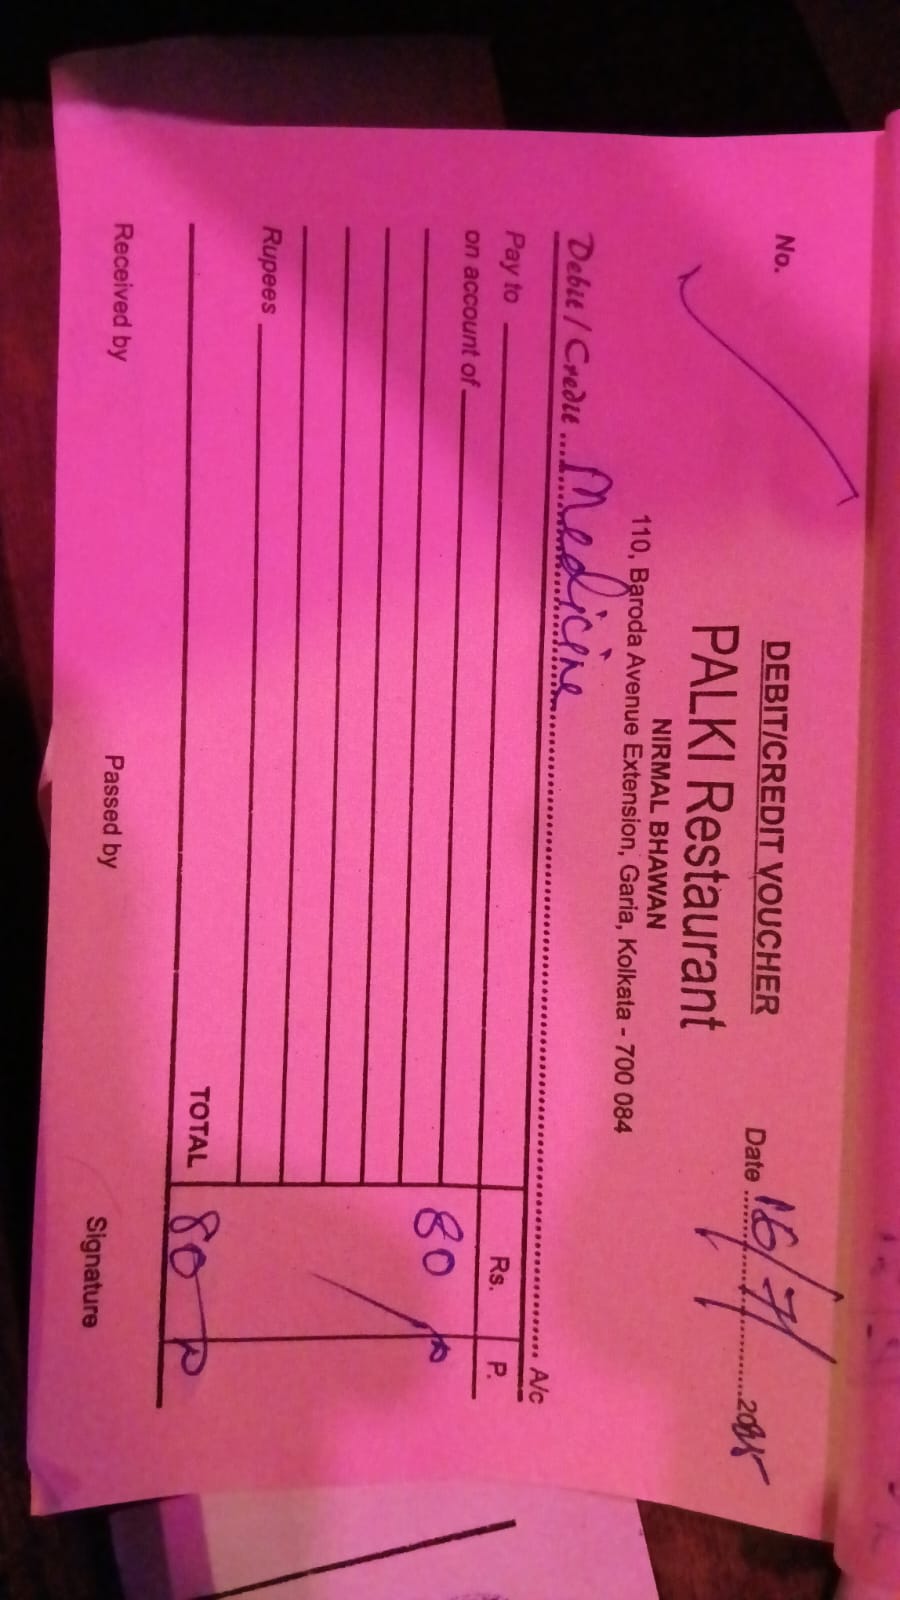 No.
DEBIT/CREDIT VOUCHER
Date 16/7/
PALKI Restaurant
NIRMAL BHAWAN
110, Baroda Avenue Extension, Garia, Kolkata - 700 084
Debit / Credit Medicine A/c
Pay to Rs. P.
on account of
80
Rupees
TOTAL 80
Received by Passed by Signature